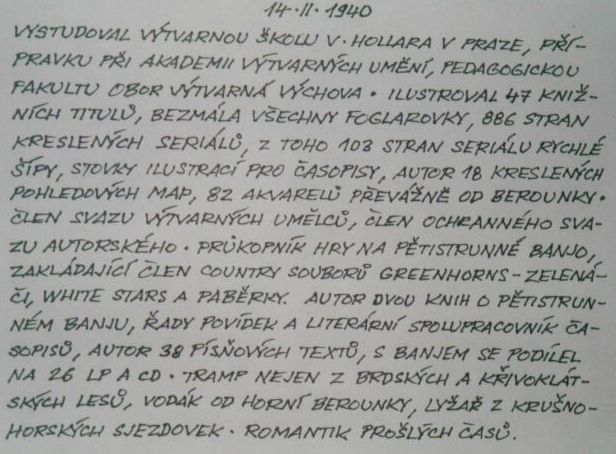 14·II·1940
VYSTUDOVAL VÝTVARNOU ŠKOLU V·HOLLARA V PRAZE, PŘÍ-
PRAVKU PŘI AKADEMII VÝTVARNÝCH UMĚNÍ, PEDAGOGICKOU
FAKULTU OBOR VÝTVARNÁ VÝCHOVA · ILUSTROVAL 47 KNIŽ-
NÍCH TITULŮ, BEZMÁLA VŠECHNY FOGLAROVKY, 886 STRAN
KRESLENÝCH SERIÁLŮ, Z TOHO 103 STRAN SERIÁLU RYCHLÉ
ŠÍPY, STOVKY ILUSTRACÍ PRO ČASOPISY, AUTOR 18 KRESLENÝCH
POHLEDOVÝCH MAP, 82 AKVARELŮ PŘEVÁŽNĚ OD BEROUNKY·
ČLEN SVAZU VÝTVARNÝCH UMĚLCŮ, ČLEN OCHRANNÉHO SVA-
ZU AUTORSKÉHO · PRŮKOPNÍK HRY NA PĚTISTRUNNÉ BANJO,
ZAKLÁDAJÍCÍ ČLEN COUNTRY SOUBORŮ GREENHORNS-ZELENÁ-
ČI, WHITE STARS A PABĚRKY. AUTOR DVOU KNIH O PĚTISTRUN-
NÉM BANJU, ŘADY POVÍDEK A LITERÁRNÍ SPOLUPRACOVNÍK ČA-
SOPISŮ, AUTOR 38 PÍSŇOVÝCH TEXTŮ, S BANJEM SE PODÍLEL
NA 26 LP A CD · TRAMP NEJEN Z BRDSKÝCH A KŘIVOKLÁT-
SKÝCH LESŮ, VODÁK OD HORNÍ BEROUNKY, LYŽAŘ Z KRUŠNO-
HORSKÝCH SJEZDOVEK · ROMANTIK PROŠLÝCH ČASŮ.